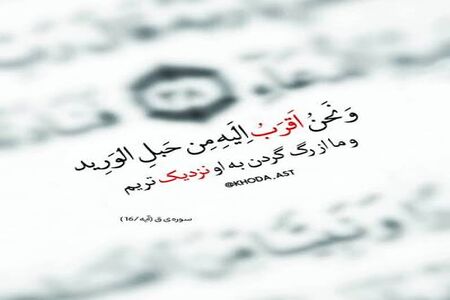 وَ نَحنُ اَقرَبُ اِلَیهِ مِن حَبلِ الوَرید
و ما از رگ گردن به او نزدیک تریم
@KHODA_AST
سوره‌ی ق (آیه/16)